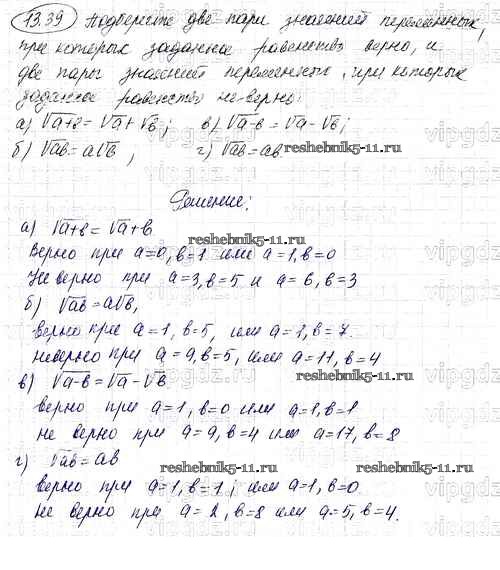 13.39 Подберите две пары значений переменных,
при которых заданное равенство верно, и
две пары значений переменных, при которых
заданное равенство не верно:
а) √a+в = √a + √в; в) √a-в = √a - √в;
б) √ab = a√в, г) √ab = ab. reshebnik5-11.ru
Решение:
reshebnik5-11.ru
а) √a+в = √a + в
Верно при a=0, в=1 или a=1, в=0
Не верно при a=3, в=5 и a=6, в=3
б) √ab = a√в,
верно при a=1, в=5, или a=1, в=7.
неверно при a=9, в=5, или a=11, в=4
в) √a-в = √a - √в reshebnik5-11.ru
верно при a=1, в=0 или a=1, в=1
не верно при a=9, в=4 или a=17, в=8
г) √ab = ab reshebnik5-11.ru
верно при a=1, в=1; или a=1, в=0
не верно при a=2, в=8 или a=5, в=4.
reshebnik5-11.ru